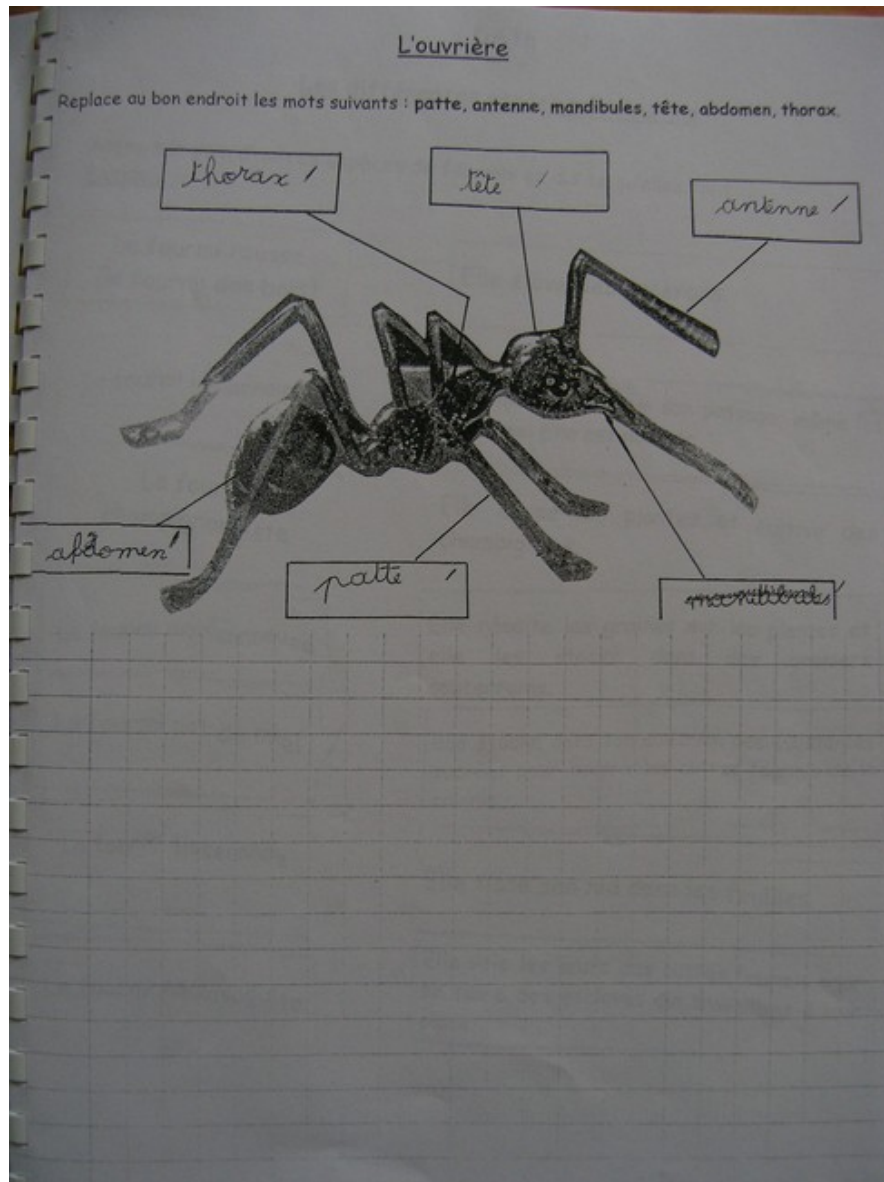 L'ouvrière
Replace au bon endroit les mots suivants : patte, antenne, mandibules, tête, abdomen, thorax.
thorax
tête
antenne
abdomen
patte